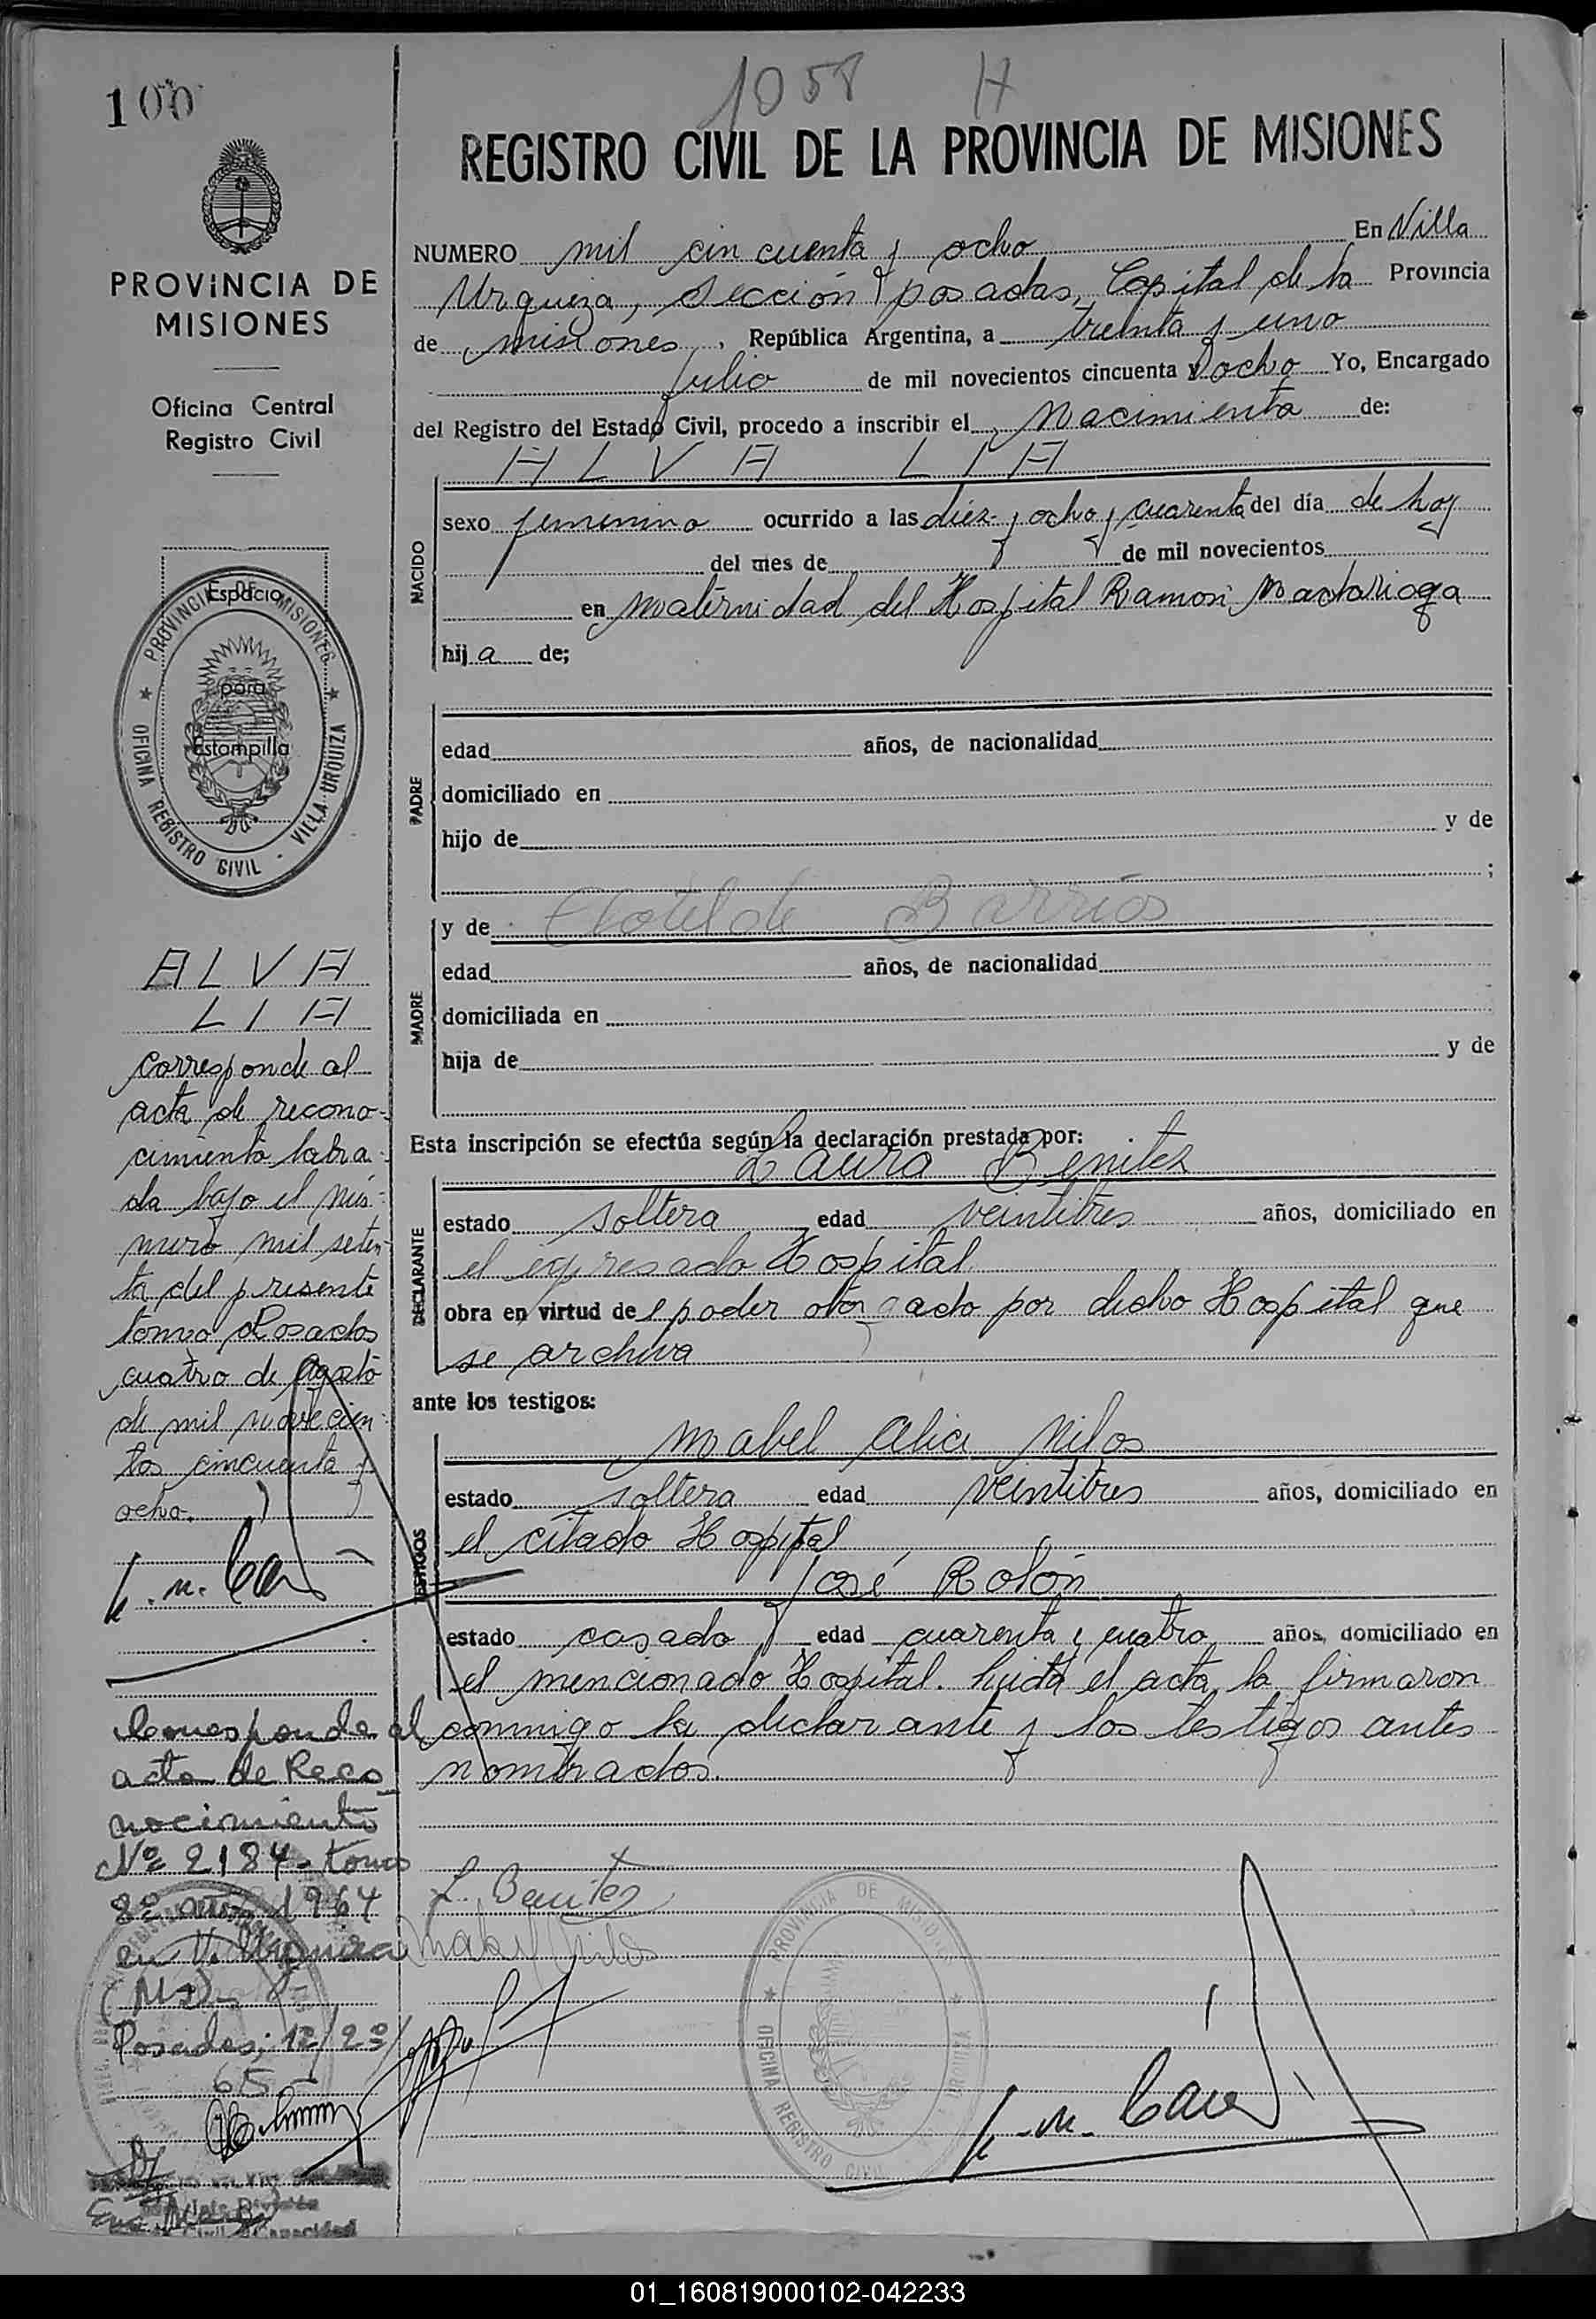 100
1058 H
REGISTRO CIVIL DE LA PROVINCIA DE MISIONES
PROVINCIA DE
MISIONES
Oficina Central
Registro Civil
NUMERO mil cincuenta y ocho En Villa
Urquiza, sección posadas, Capital de la Provincia
de misiones, República Argentina, a treinta y uno
Julio de mil novecientos cincuenta y ocho Yo, Encargado
del Registro del Estado Civil, procedo a inscribir el Nacimiento de:
ALVA LIA
NACIDO
sexo femenino ocurrido a las diez y ocho y cuarenta del día de hoy
del mes de de mil novecientos
en Maternidad del Hospital Ramon Madariaga
hija de;
PADRE
edad años, de nacionalidad
domiciliado en
hijo de y de
;
y de Clotilde Barrios
MADRE
edad años, de nacionalidad
domiciliada en
hija de y de
Esta inscripción se efectúa según la declaración prestada por:
Laura Benitez
DECLARANTE
estado soltera edad veintitres años, domiciliado en
el expresado Hospital
obra en virtud del poder otorgado por dicho Hospital que
se archiva
ante los testigos:
Mabel Alicia Nilos
TESTIGOS
estado soltera edad veintitres años, domiciliado en
el citado Hospital
José Rolón
estado casado edad cuarenta y cuatro años, domiciliado en
el mencionado Hospital. Leida el acta, la firmaron
conmigo la declarante y los testigos antes
nombrados.
L. Benitez
PROVINCIA DE MISIONES
OFICINA REGISTRO CIVIL - VILLA URQUIZA
Espacio
para
Estampilla
ALVA
LIA
corresponde al
acta de recono-
cimiento labra-
da bajo el nú-
mero mil seten-
ta del presente
tomo Posadas
cuatro de Agosto
de mil novecien-
tos cincuenta y
ocho.
Corresponde al
acta de Reco-
nocimiento
Nº 2184 - tomo
8º año 1964
en V. Urquiza
Posadas; 12/2º/
65
PROVINCIA DE MISIONES
OFICINA REGISTRO CIVIL URQUIZA
01_160819000102-042233